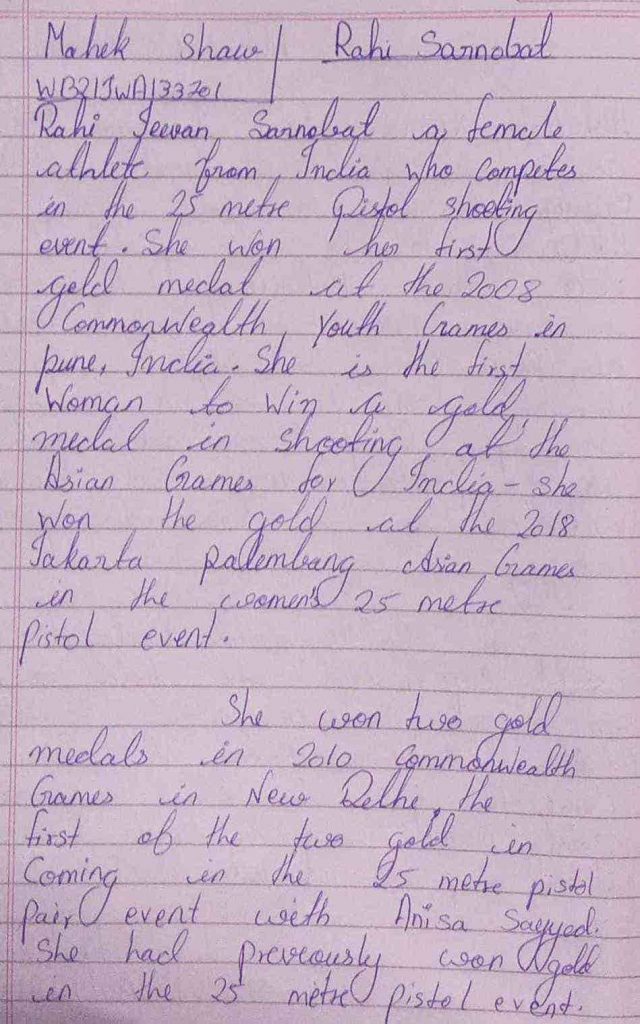 Mahek Shaw | Rahi Sarnobat
WB21JWA133201
Rahi Jeevan Sarnobat a female
athlete from India who competes
in the 25 metre Pistol shooting
event. She won her first
gold medal at the 2008
Commonwealth Youth Games in
pune, India. She is the first
Woman to win a gold
medal in shooting at the
Asian Games for India - she
won the gold at the 2018
Jakarta palembang Asian Games
in the women's 25 metre
Pistol event.
She won two gold
medals in 2010 Commonwealth
Games in New Delhe, the
first of the two gold in
Coming in the 25 metre pistol
pair event with Anisa Sayyed.
She had previously won gold
in the 25 metre pistol event.